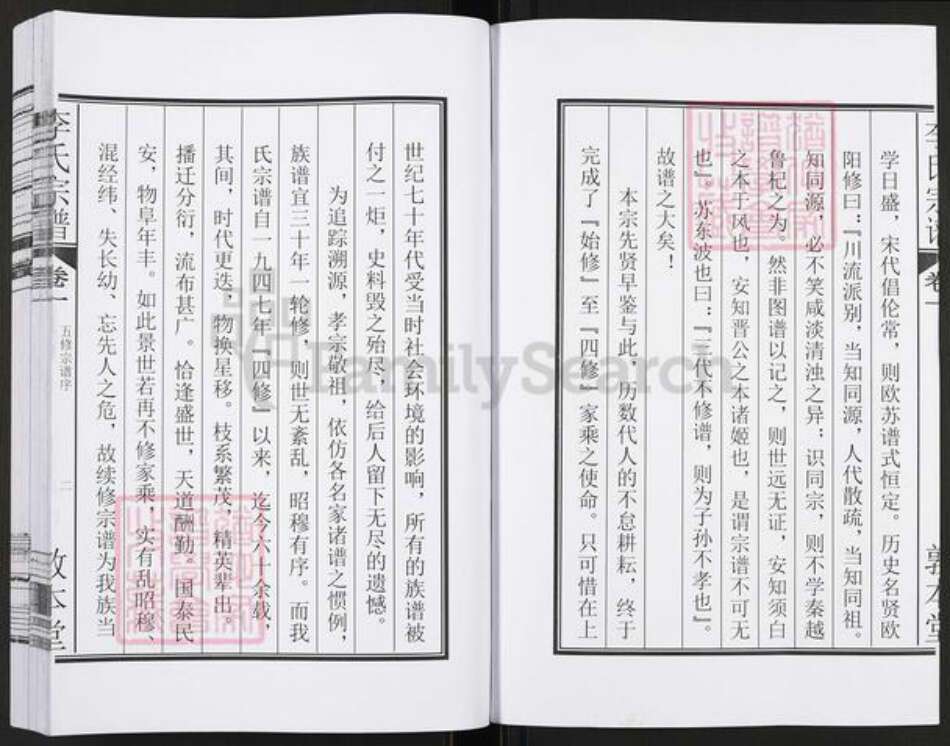 学日盛，宋代倡伦常，则欧苏谱式恒定。历史名贤欧
阳修曰：『川流派别，当知同源，人代散疏，当知同祖。
知同源，必不笑咸淡清浊之异；识同宗，则不学秦越
鲁杞之为。然非图谱以记之，则世远无证，安知须白
之本于风也，安知晋公之本诸姬也，是谓宗谱不可无
也』。苏东波也曰：『三代不修谱，则为子孙不孝也』。
故谱之大矣！
本宗先贤早鉴与此，历数代人的不怠耕耘，终于
完成了『始修』至『四修』家乘之使命。只可惜在上
李氏宗谱
卷一
敦本堂
世纪七十年代受当时社会环境的影响，所有的族谱被
付之一炬，史料毁之殆尽，给后人留下无尽的遗憾。
为追踪溯源，孝宗敬祖，依仿各名家诸谱之惯例，
族谱宜三十年一轮修，则世无紊乱，昭穆有序。而我
氏宗谱自一九四七年『四修』以来，迄今六十余载，
其间，时代更迭，物换星移。枝系繁茂，精英辈出。
播迁分衍，流布甚广。恰逢盛世，天道酬勤。国泰民
安，物阜年丰。如此景世若再不修家乘，实有乱昭穆、
混经纬、失长幼、忘先人之危，故续修宗谱为我族当
李氏宗谱
卷一
五修宗谱序
二
敦本堂
FamilySearch